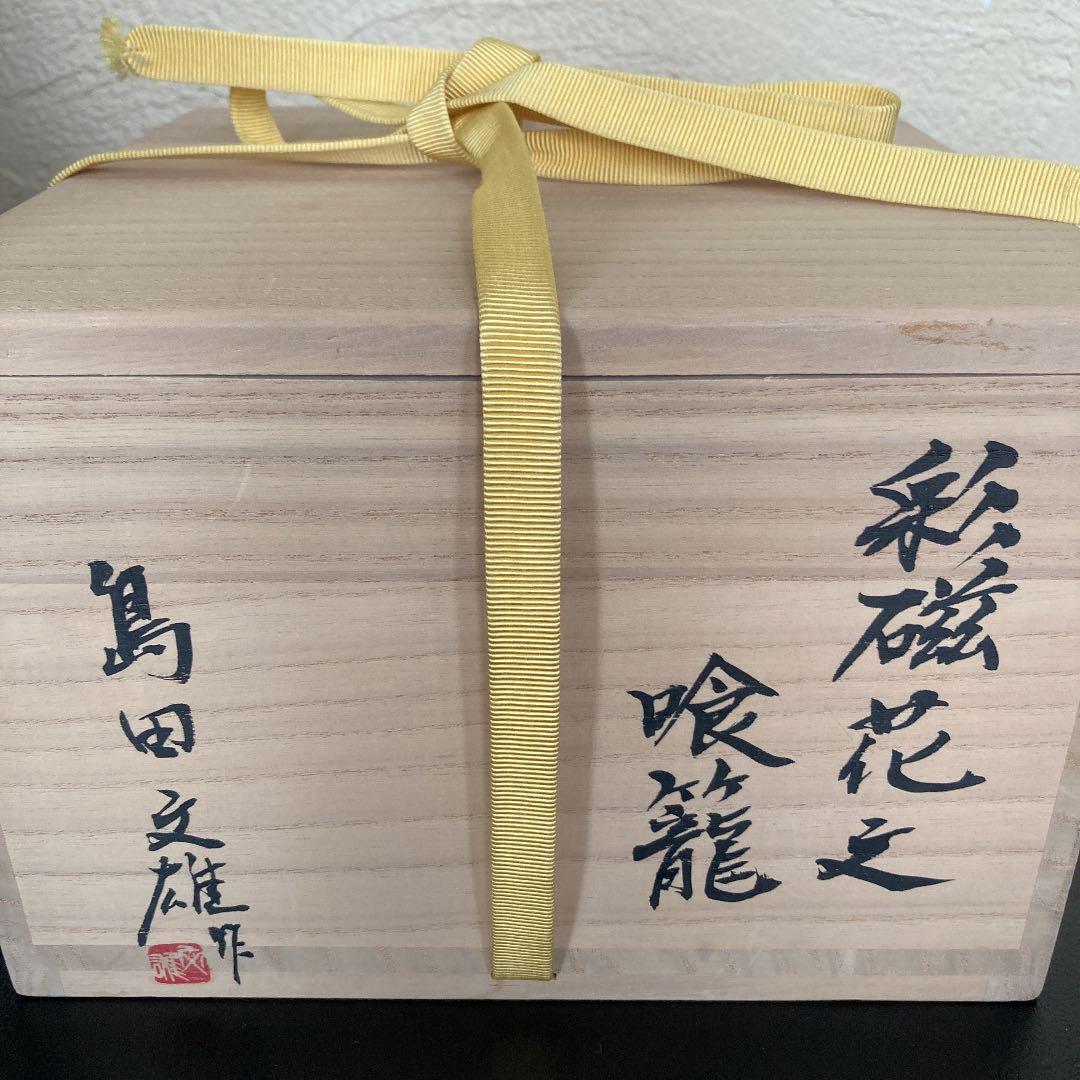 彩磁花文
喰籠
島田文雄作
文雄